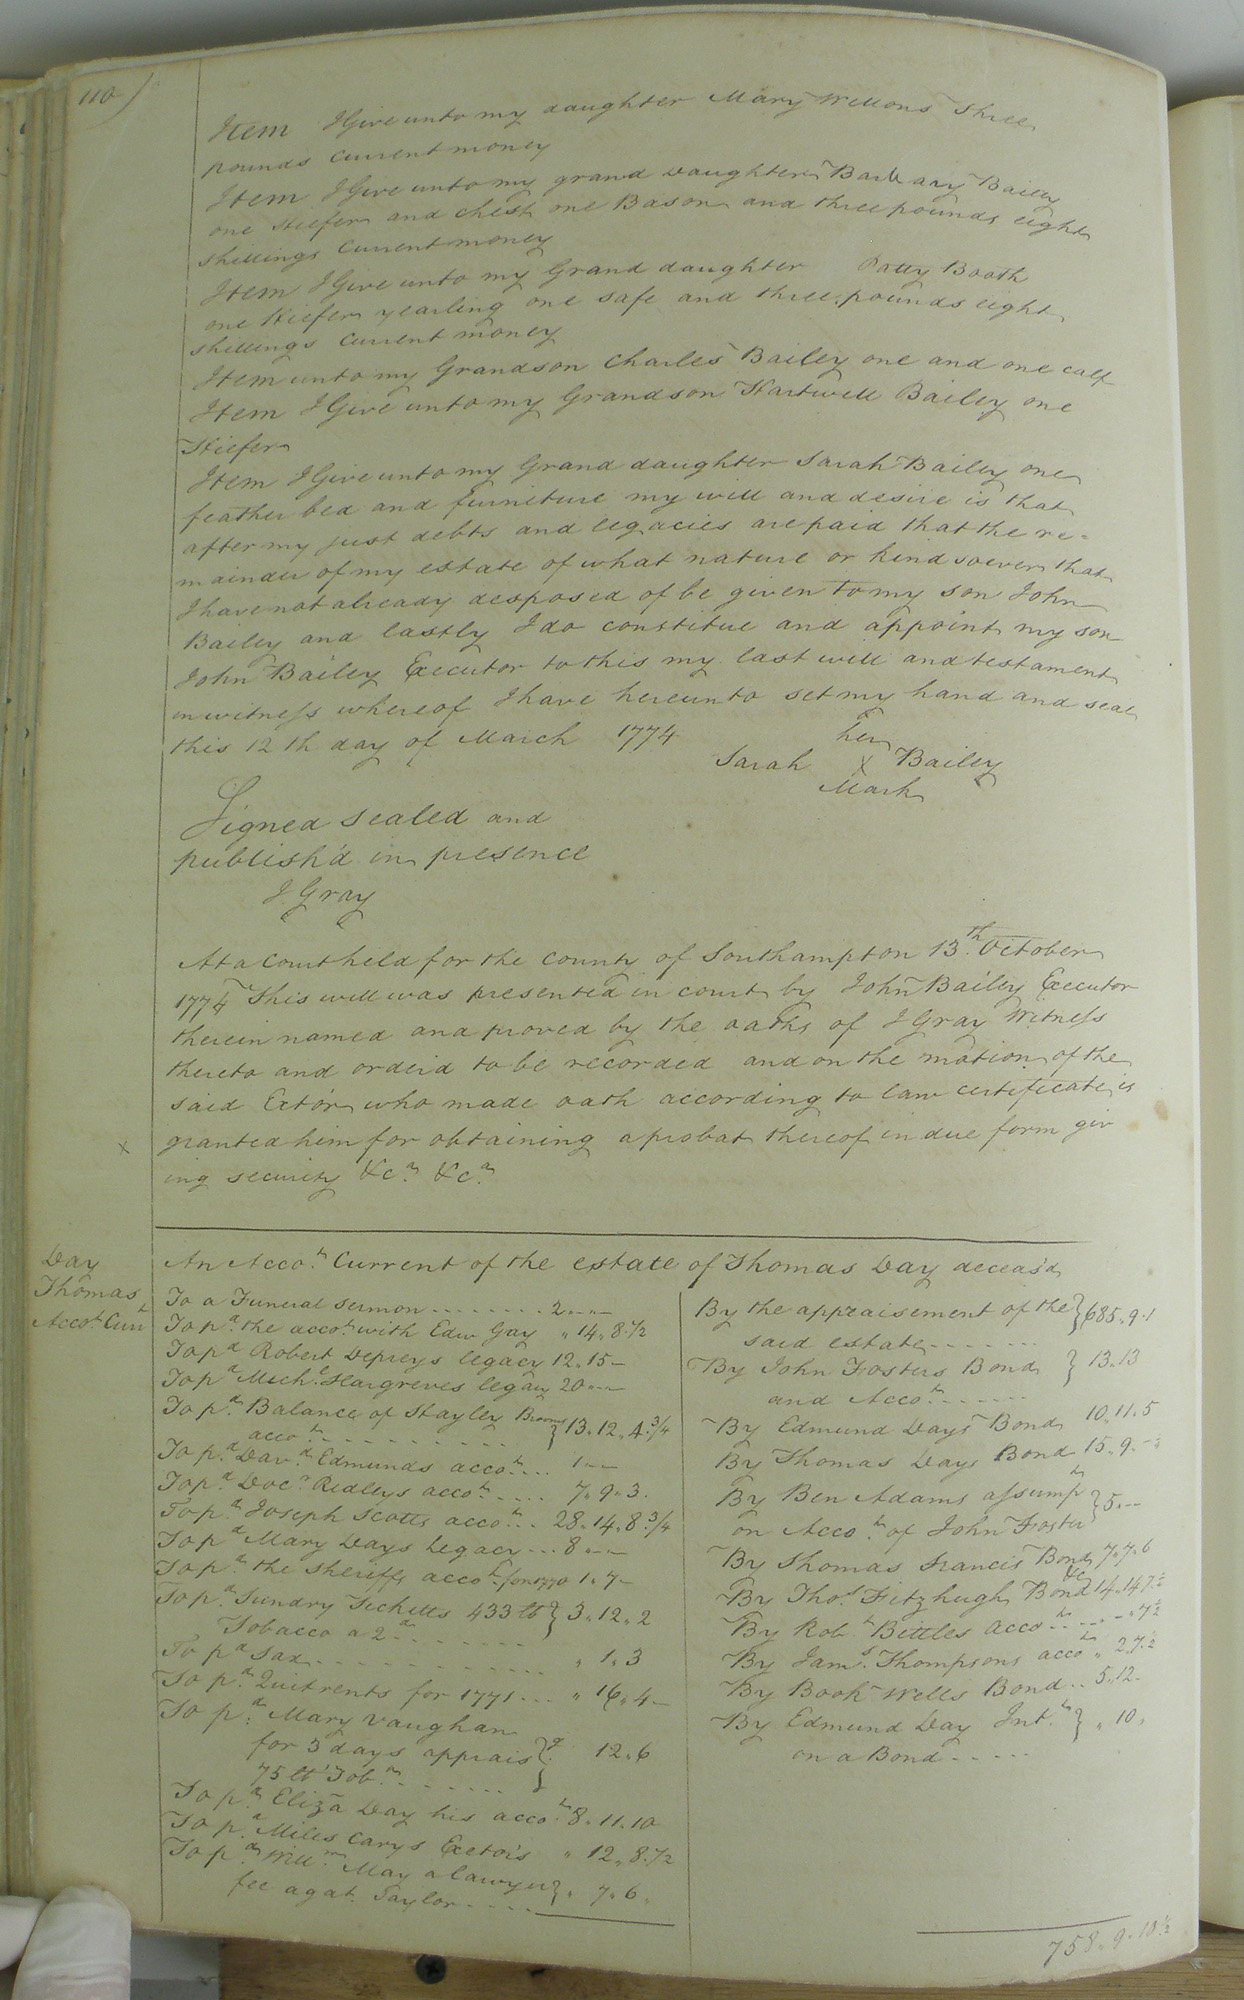 110
Item I Give unto my daughter Mary Wellons three
pounds current money
Item I Give unto my grand daughter Barbary Bailey
one Hiefer and chest one Bason and three pounds eight
shillings current money
Item I Give unto my Grand daughter Patty Booth
one Hiefer yearling one safe and three pounds eight
shillings current money
Item unto my Grandson Charles Bailey one and one calf
Item I Give unto my Grandson Hartwell Bailey one
Hiefer
Item I Give unto my Grand daughter Sarah Bailey one
feather bed and furniture my will and desire is that
after my just debts and legacies are paid that the re=
mainder of my estate of what nature or kind soever that
I have not already desposed of be given to my son John
Bailey and lastly I do constitue and appoint my son
John Bailey Executor to this my last will and testament
in witness whereof I have hereunto set my hand and seal
this 12th day of March 1774
her
Sarah X Bailey
Mark
Signed sealed and
publish'd in presence
J. Gray
At a Court held for the county of Southampton 13th October
1774 This will was presented in court by John Bailey Executor
therein named and proved by the oaths of J Gray Witness
thereto and orderd to be recorded and on the motion of the
said Extor who made oath according to law certificate is
X granted him for obtaining a probat thereof in due form giv
ing security &ca &ca
Day
Thomas
Accot Curt
An Accot Current of the estate of Thomas Day deceas'd
To a Funeral sermon 2 " " —
To pd the accot with Edw Gay " 14 " 8 1/2
To pd Robert Depreys legacy 12 " 15 —
To pd Michl Hargreves legacy 20 " " —
To pd Balance of Stayley Browns
accot } 13 " 12 " 4 3/4
To pd Davd Edmunds accot 1 " —
To pd Docr Ridleys accot 7 " 9 " 3
To pd Joseph Scotts accot 28 " 14 " 8 3/4
To pd Mary Days Legacy 8 " " —
To pd the Sheriffs accot for 1770 1 " 7 —
To pd Sundry Ticketts 433 lt } 3 " 12 " 2
Tobacco a 2d
To pd Tax " 1 " 3
To pd Quitrents for 1771 " 16 " 4 —
To pd Mary Vaughan
for 3 days apprais } 12 " 6
75 lt Tob
To pd Eliza Day his accot 8 " 11 " 10
To pd Miles Carys Exetors " 12 " 8 1/2
To pd Willm May a lawyer } " 7 " 6
fee agat Taylor
By the appraisement of the } 685 " 9 " 1
said estate
By John Fosters Bond } 13 " 13
and Accot
By Edmund Days Bond 10 " 11 " 5
By Thomas Days Bond 15 " 9 "
By Ben Adams assumpt } 5 " —
on Accot of John Foster
By Thomas Francis Bond 7 " 7 " 6
By Thos Fitzhugh Bond &c 14 " 14 7 1/2
By Robt Bittles accot " 7 1/2
By Jams Thompsons accot " 2 " 7 1/2
By Book Wells Bond 5 " 12 -
By Edmund Day Intt } " 10 "
on a Bond
758 " 9 " 10 1/2